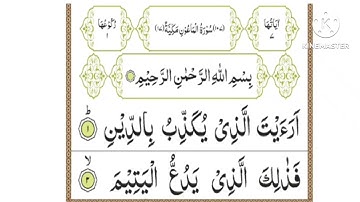 KINEMASTER
اٰيَاتُهَا ٧
(١٠٧) سُوْرَةُ الْمَاعُوْنِ مَكِّيَّةٌ (١٧)
رُكُوْعُهَا ١
بِسْمِ اللّٰهِ الرَّحْمٰنِ الرَّحِيْمِ
اَرَءَيْتَ الَّذِىْ يُكَذِّبُ بِالدِّيْنِ ؕ ١
فَذٰلِكَ الَّذِىْ يَدُعُّ الْيَتِيْمَ ۙ ٢